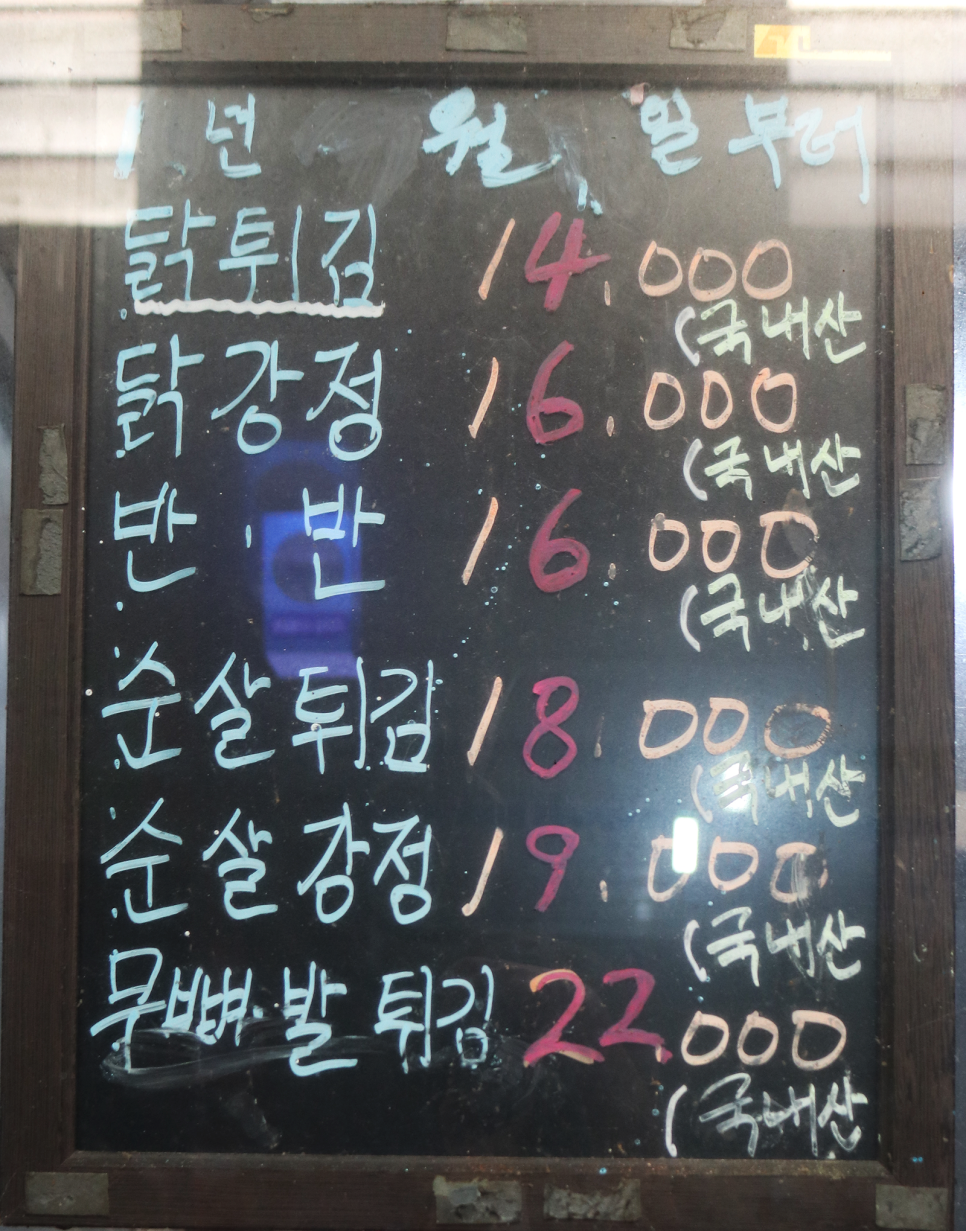 년 월 일 부터
닭튀김 14,000
(국내산
닭강정 16,000
(국내산
반.반 16,000
(국내산
순살튀김 18,000
(국내산
순살강정 19,000
(국내산
무뼈발튀김 22,000
(국내산